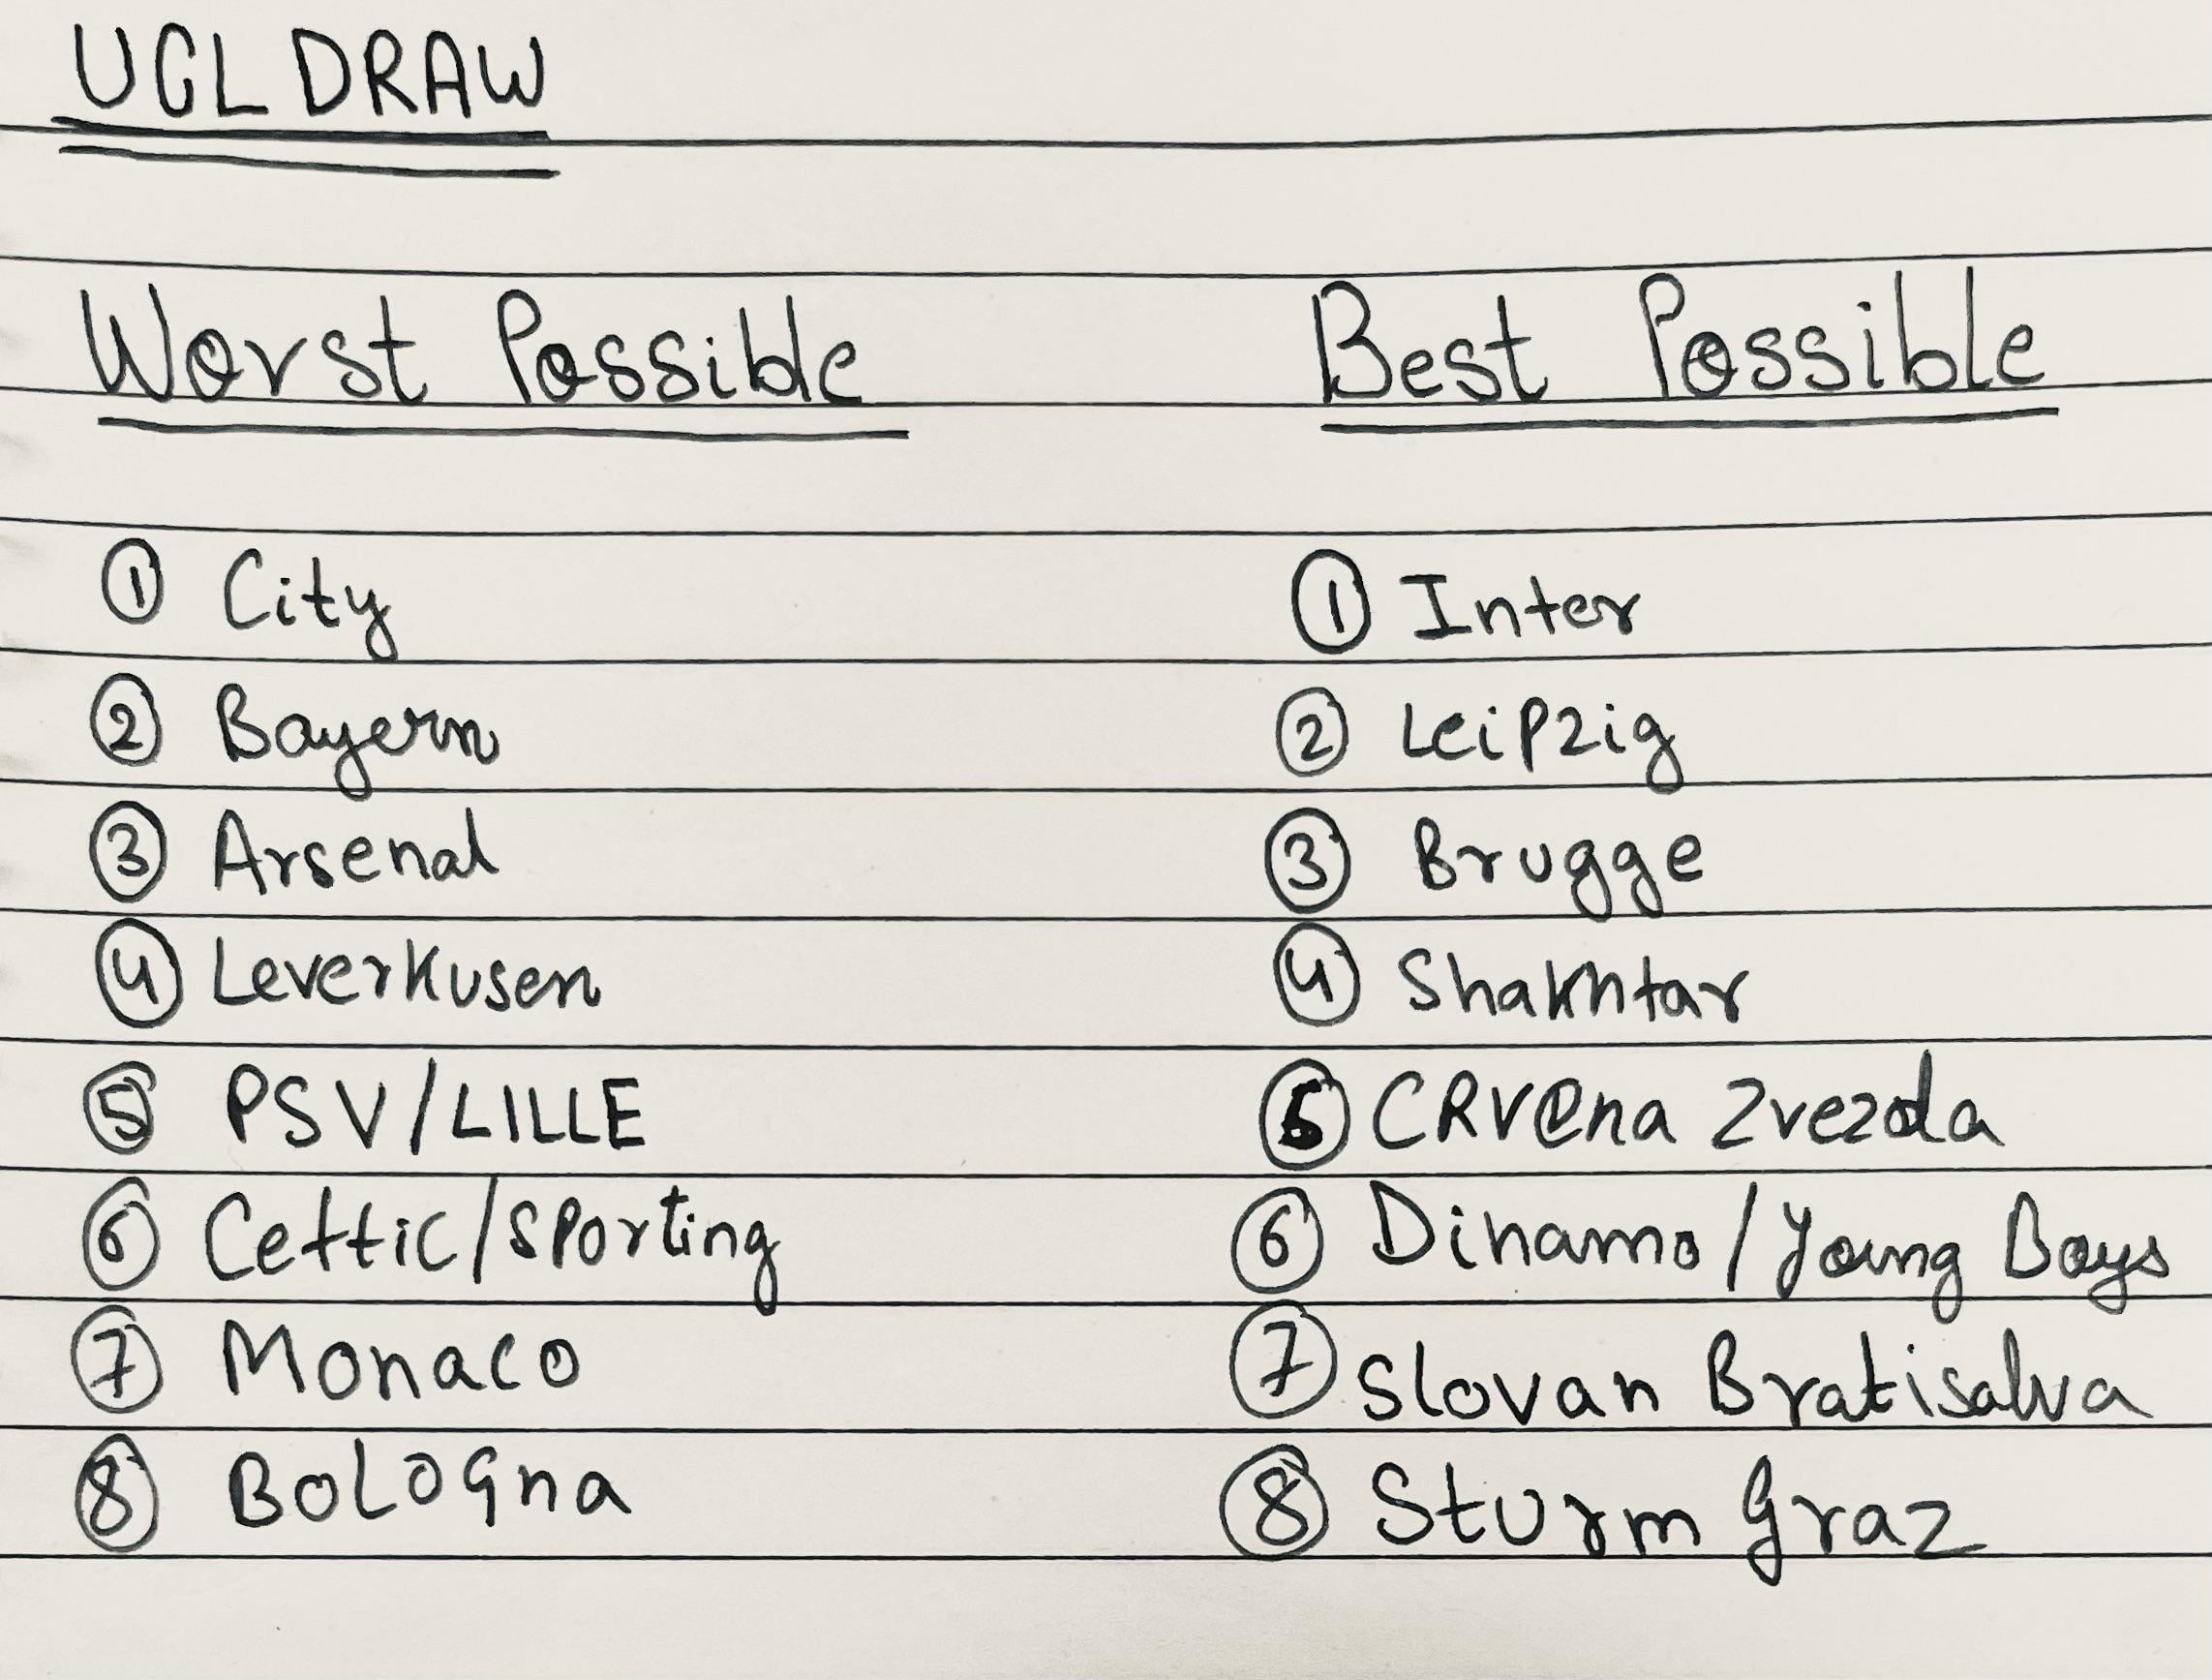 UCL DRAW
Worst Possible
① City
② Bayern
③ Arsenal
④ Leverkusen
⑤ PSV/LILLE
⑥ Celtic/Sporting
⑦ Monaco
⑧ BoLoGna
Best Possible
① Inter
② Leipzig
③ Brugge
④ Shakhtar
⑤ CRVena Zvezda
⑥ Dinamo/Young Boys
⑦ Slovan Bratisalva
⑧ Sturm Graz